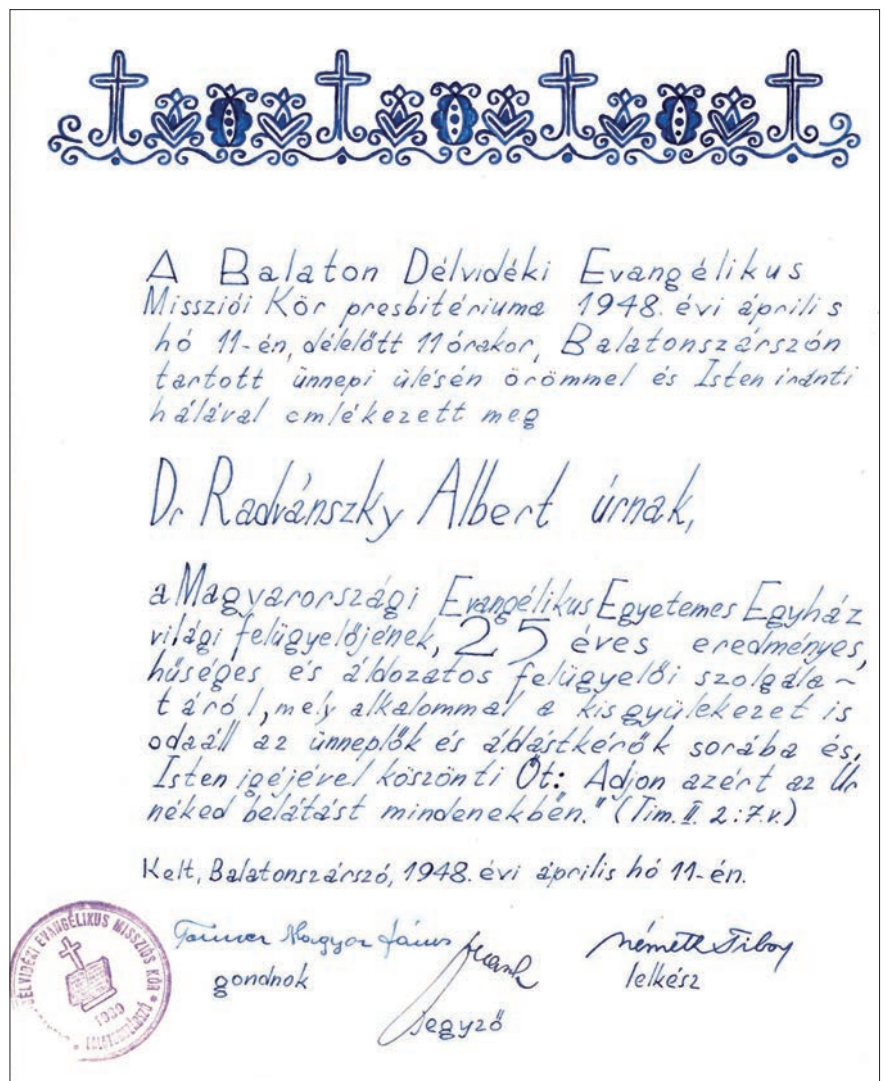 A Balaton Délvidéki Evangélikus
Missziói Kör presbitériuma 1948. évi április
hó 11-én, délelőtt 11 órakor, Balatonszárszón
tartott ünnepi ülésén örömmel és Isten iránti
hálával emlékezett meg
Dr Radvánszky Albert úrnak,
a Magyarországi Evangélikus Egyetemes Egyház
világi felügyelőjének, 25 éves eredményes,
hűséges és áldozatos felügyelői szolgála-
táról, mely alkalommal a kisgyülekezet is
odaáll az ünneplők és áldástkérők sorába és,
Isten igéjével köszönti Őt: Adjon azért az Úr
néked belátást mindenekben." (Tim. II. 2:7.v.)
Kelt, Balatonszárszó, 1948. évi április hó 11-én.
János
Németh Tibor
gondnok
lelkész
jegyző
DÉLVIDÉKI EVANGÉLIKUS MISSZIÓS KÖR